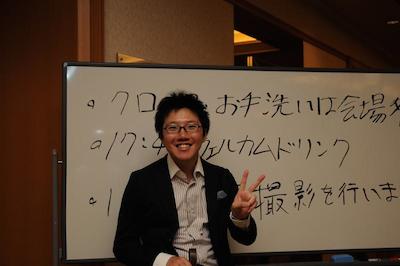 ・クロ お手洗いは会場
・17: ェルカムドリンク
・1 撮影を行いま